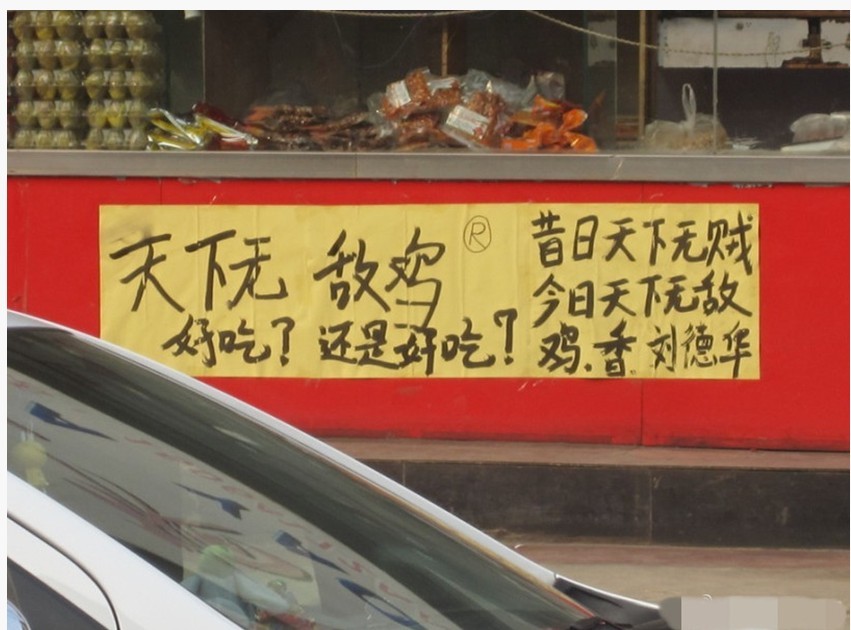 天下无敌鸡®
好吃？还是好吃？
昔日天下无贼
今日天下无敌
鸡.香.刘德华